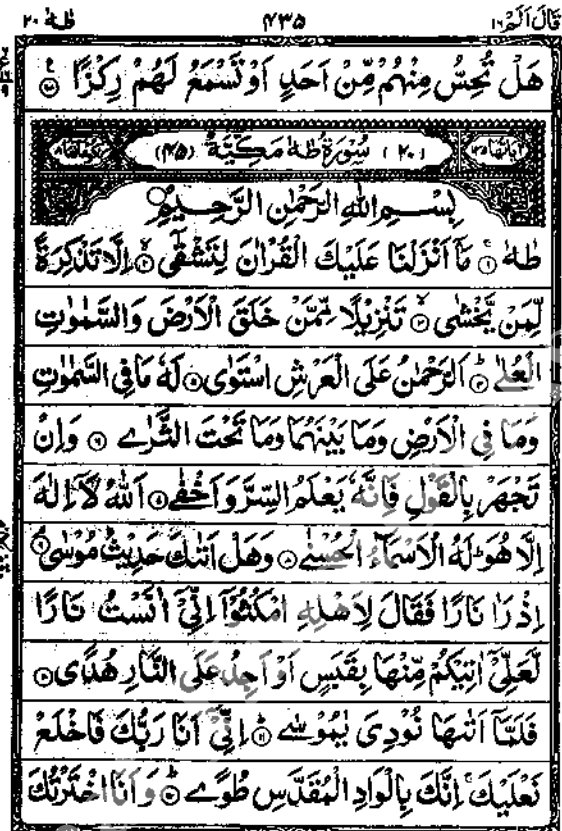 قَالَ اَلَمْ ١٦ ٤٣٥ طٰهٰ ٢٠
هَلْ تُحِسُّ مِنْهُمْ مِّنْ اَحَدٍ اَوْ تَسْمَعُ لَهُمْ رِكْزًا ۝٩٨
(٢٠) سُوْرَةُ طٰهٰ مَكِّيَّةٌ (٤٥)
بِسْمِ اللّٰهِ الرَّحْمٰنِ الرَّحِيْمِ
طٰهٰ ۝١ مَاۤ اَنْزَلْنَا عَلَيْكَ الْقُرْاٰنَ لِتَشْقٰۤى ۝٢ اِلَّا تَذْكِرَةً
لِّمَنْ يَّخْشٰى ۝٣ تَنْزِيْلًا مِّمَّنْ خَلَقَ الْاَرْضَ وَالسَّمٰوٰتِ
الْعُلٰى ۝٤ اَلرَّحْمٰنُ عَلَى الْعَرْشِ اسْتَوٰى ۝٥ لَهٗ مَا فِى السَّمٰوٰتِ
وَمَا فِى الْاَرْضِ وَمَا بَيْنَهُمَا وَمَا تَحْتَ الثَّرٰى ۝٦ وَاِنْ
تَجْهَرْ بِالْقَوْلِ فَاِنَّهٗ يَعْلَمُ السِّرَّ وَاَخْفٰى ۝٧ اَللّٰهُ لَاۤ اِلٰهَ
اِلَّا هُوَ ؕ لَهُ الْاَسْمَآءُ الْحُسْنٰى ۝٨ وَهَلْ اَتٰىكَ حَدِيْثُ مُوْسٰى ۝٩
اِذْ رَاٰ نَارًا فَقَالَ لِاَهْلِهِ امْكُثُوْۤا اِنِّىْۤ اٰنَسْتُ نَارًا
لَّعَلِّىْۤ اٰتِيْكُمْ مِّنْهَا بِقَبَسٍ اَوْ اَجِدُ عَلَى النَّارِ هُدًى ۝١٠
فَلَمَّاۤ اَتٰىهَا نُوْدِىَ يٰمُوْسٰى ۝١١ اِنِّىْۤ اَنَا رَبُّكَ فَاخْلَعْ
نَعْلَيْكَ ۚ اِنَّكَ بِالْوَادِ الْمُقَدَّسِ طُوًى ۝١٢ وَاَنَا اخْتَرْتُكَ